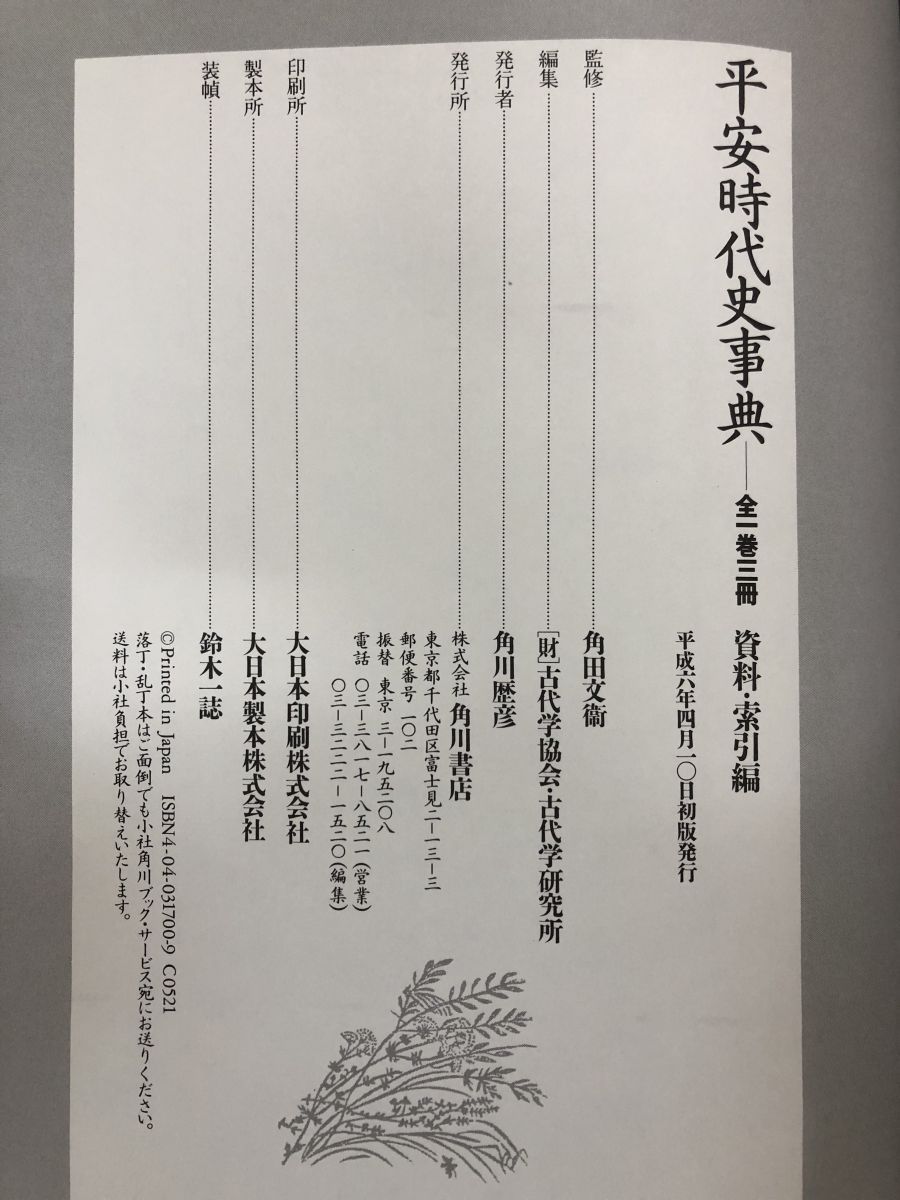 平安時代史事典――全二巻三冊 資料・索引編
平成六年四月一〇日初版発行
監修……角田文衞
編集……[財]古代学協会・古代学研究所
発行者……角川歴彦
発行所……株式会社 角川書店
東京都千代田区富士見二―一三―三
郵便番号 一〇二
振替 東京 三―一九五二〇八
電話 〇三―三八一七―八五二一(営業)
〇三―三二二二―一五二〇(編集)
印刷所……大日本印刷株式会社
製本所……大日本製本株式会社
装幀……鈴木一誌
©Printed in Japan ISBN4-04-031700-9 C0521
落丁・乱丁本はご面倒でも小社角川ブック・サービス宛にお送りください。
送料は小社負担でお取り替えいたします。